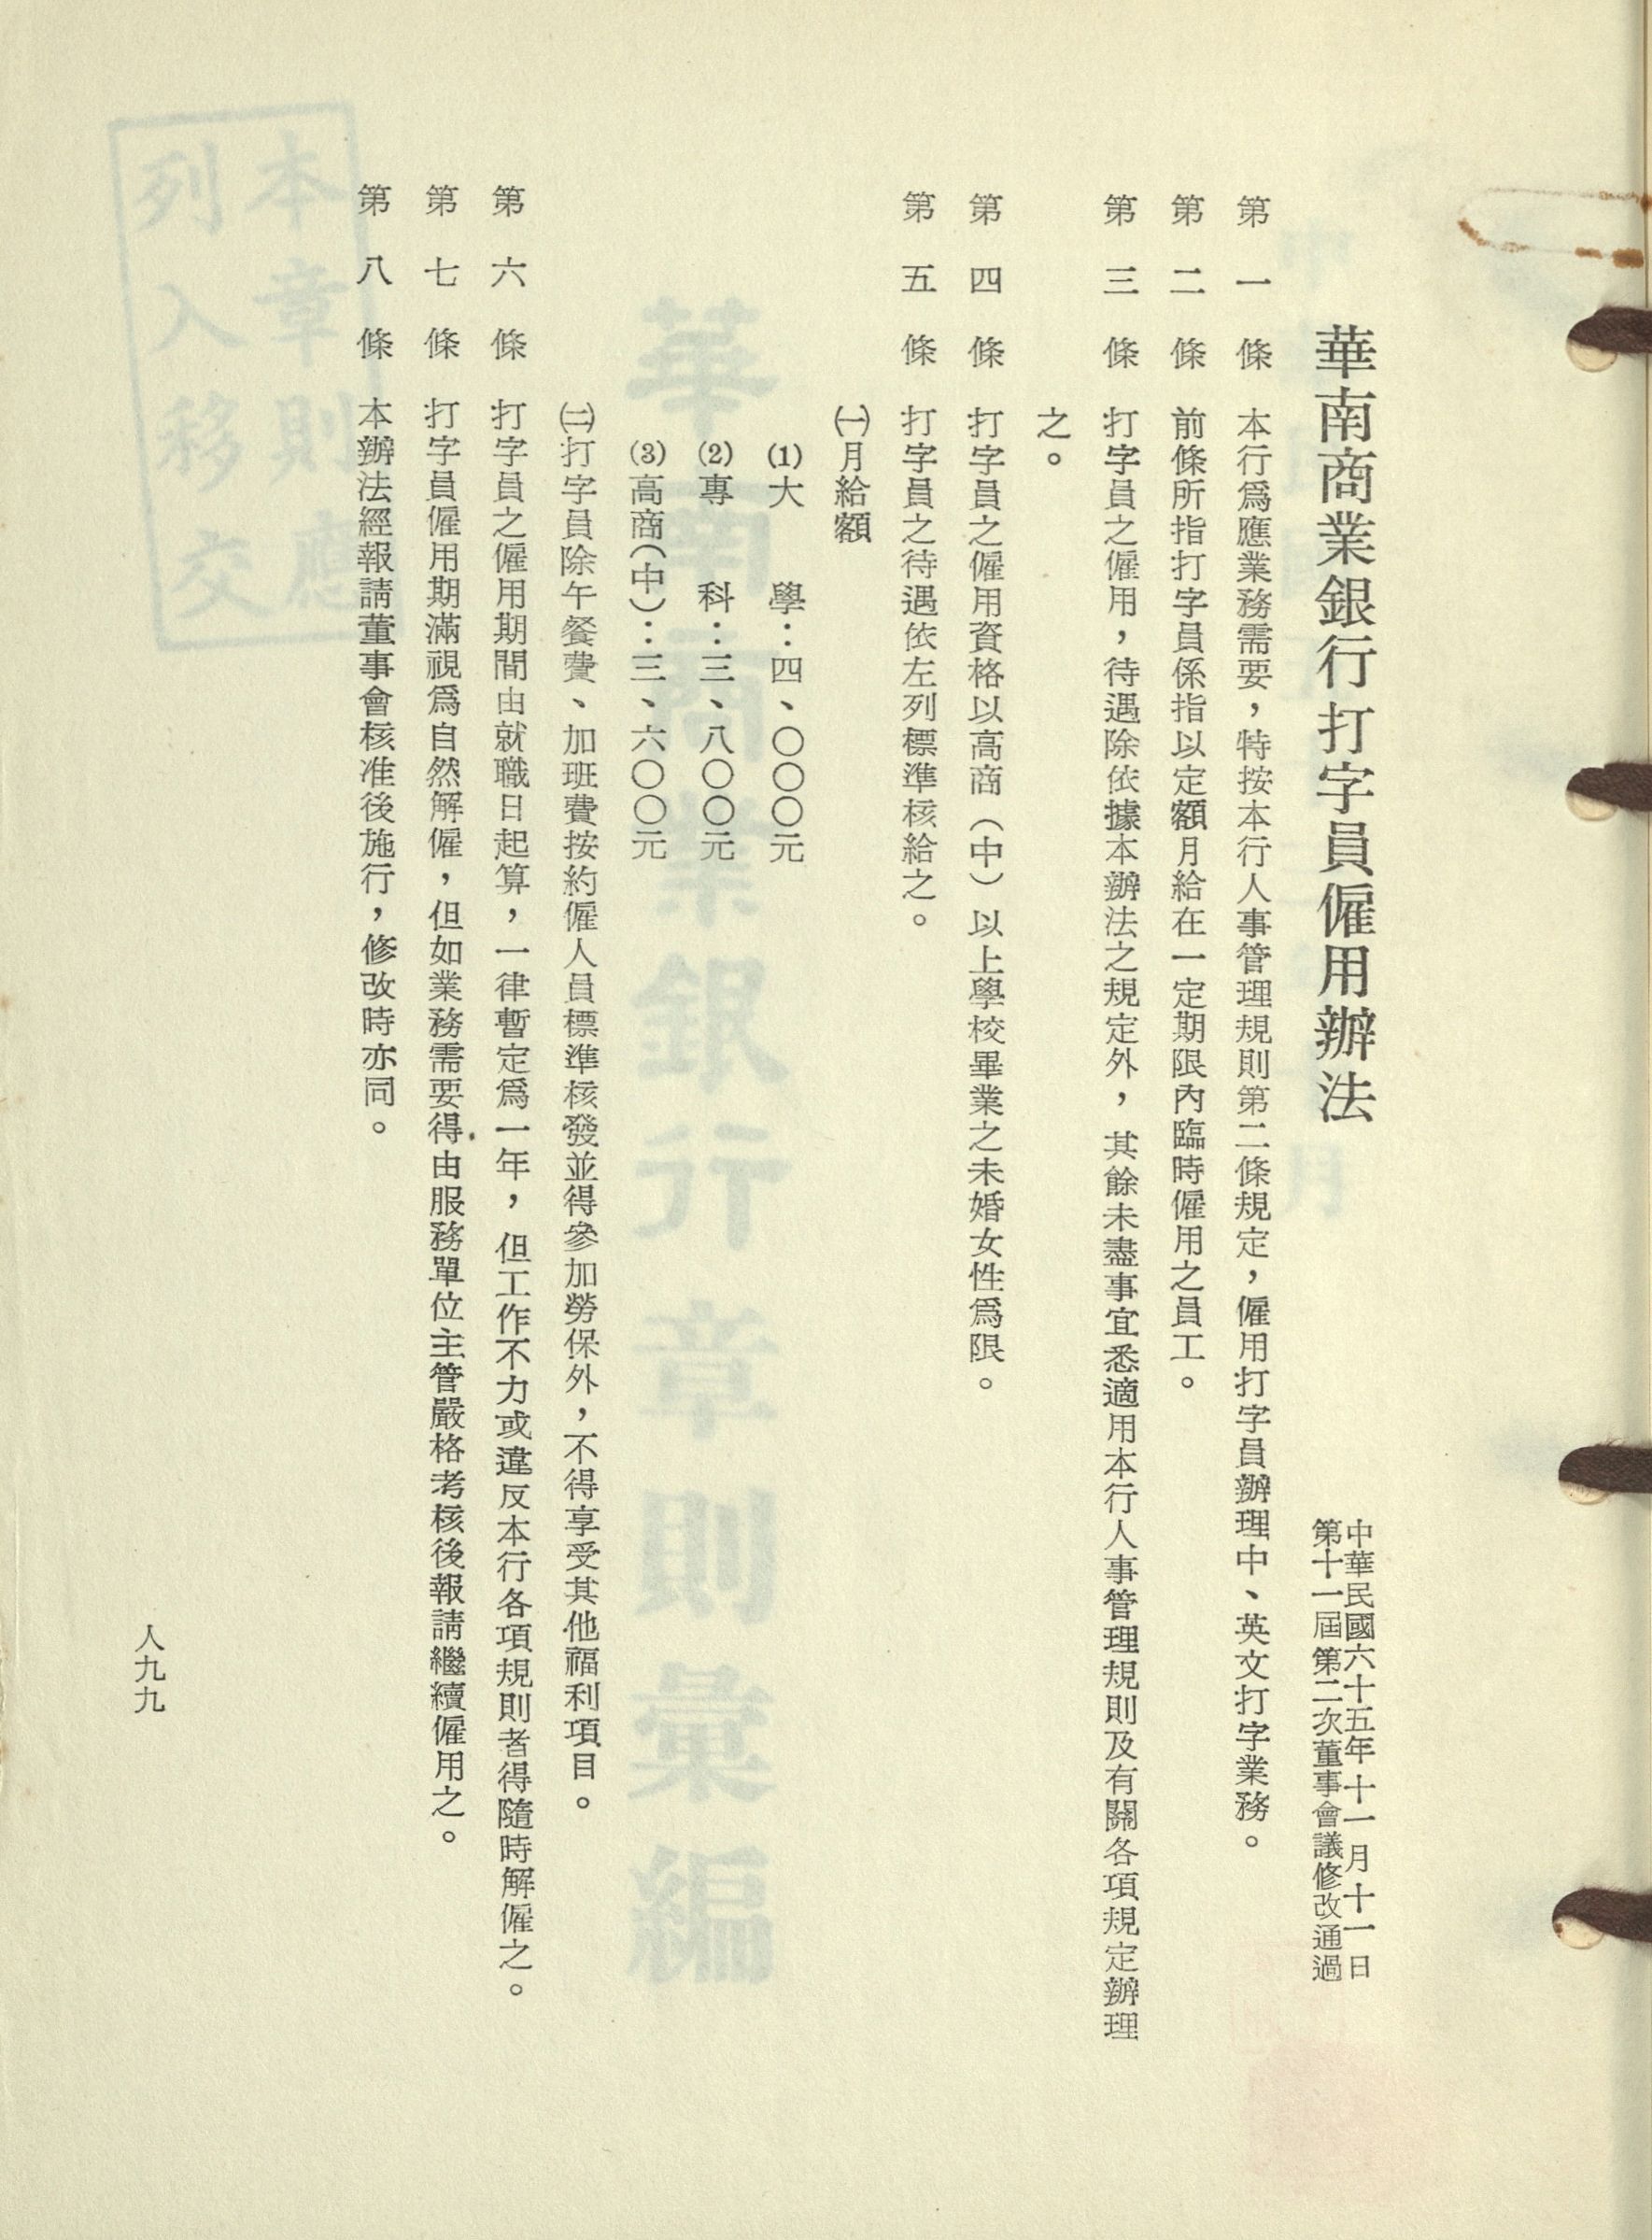 華南商業銀行打字員僱用辦法
中華民國六十五年十一月十一日
第十一屆第二次董事會議修改通過
第一條 本行爲應業務需要，特按本行人事管理規則第二條規定，僱用打字員辦理中、英文打字業務。
第二條 前條所指打字員係指以定額月給在一定期限內臨時僱用之員工。
第三條 打字員之僱用，待遇除依據本辦法之規定外，其餘未盡事宜悉適用本行人事管理規則及有關各項規定辦理
之。
第四條 打字員之僱用資格以高商（中）以上學校畢業之未婚女性爲限。
第五條 打字員之待遇依左列標準核給之。
㈠月給額
⑴大學：四、〇〇〇元
⑵專科：三、八〇〇元
⑶高商（中）：三、六〇〇元
㈡打字員除午餐費、加班費按約僱人員標準核發並得參加勞保外，不得享受其他福利項目。
第六條 打字員之僱用期間由就職日起算，一律暫定爲一年，但工作不力或違反本行各項規則者得隨時解僱之。
第七條 打字員僱用期滿視爲自然解僱，但如業務需要得由服務單位主管嚴格考核後報請繼續僱用之。
第八條 本辦法經報請董事會核准後施行，修改時亦同。
人九九
華南商業銀行章則彙編
本章則應
列入移交